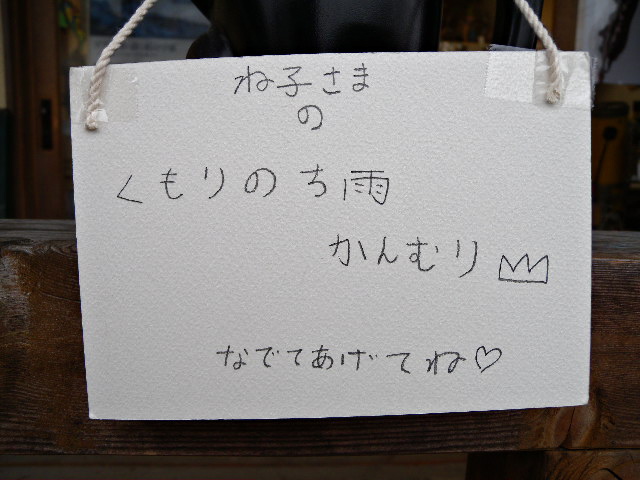 ね子さま
の
くもりのち雨
かんむり
なでてあげてね♡